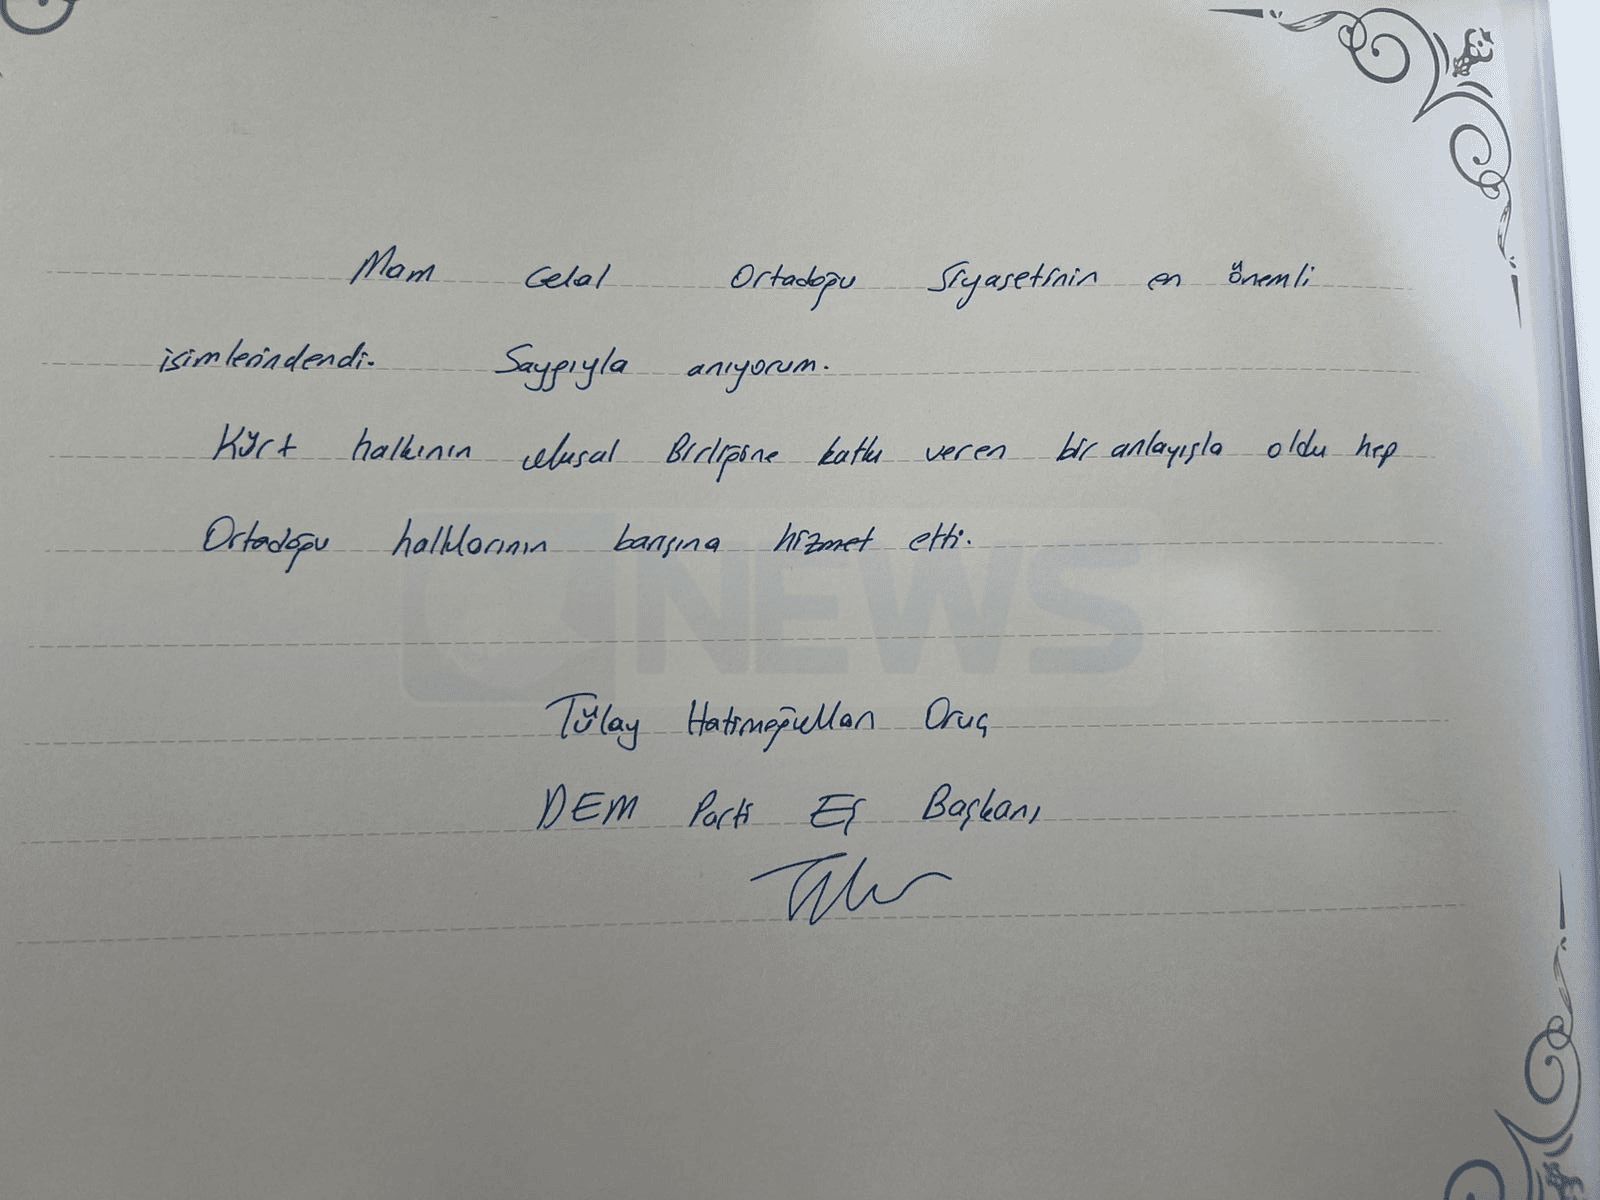 Mam Celal Ortadoğu Siyasetinin en önemli
isimlerindendi. Saygıyla anıyorum.
Kürt halkının ulusal Birliğine katkı veren bir anlayışla oldu hep
Ortadoğu halklarının barışına hizmet etti.
NEWS
Tülay Hatimoğulları Oruç
DEM Parti Eş Başkanı